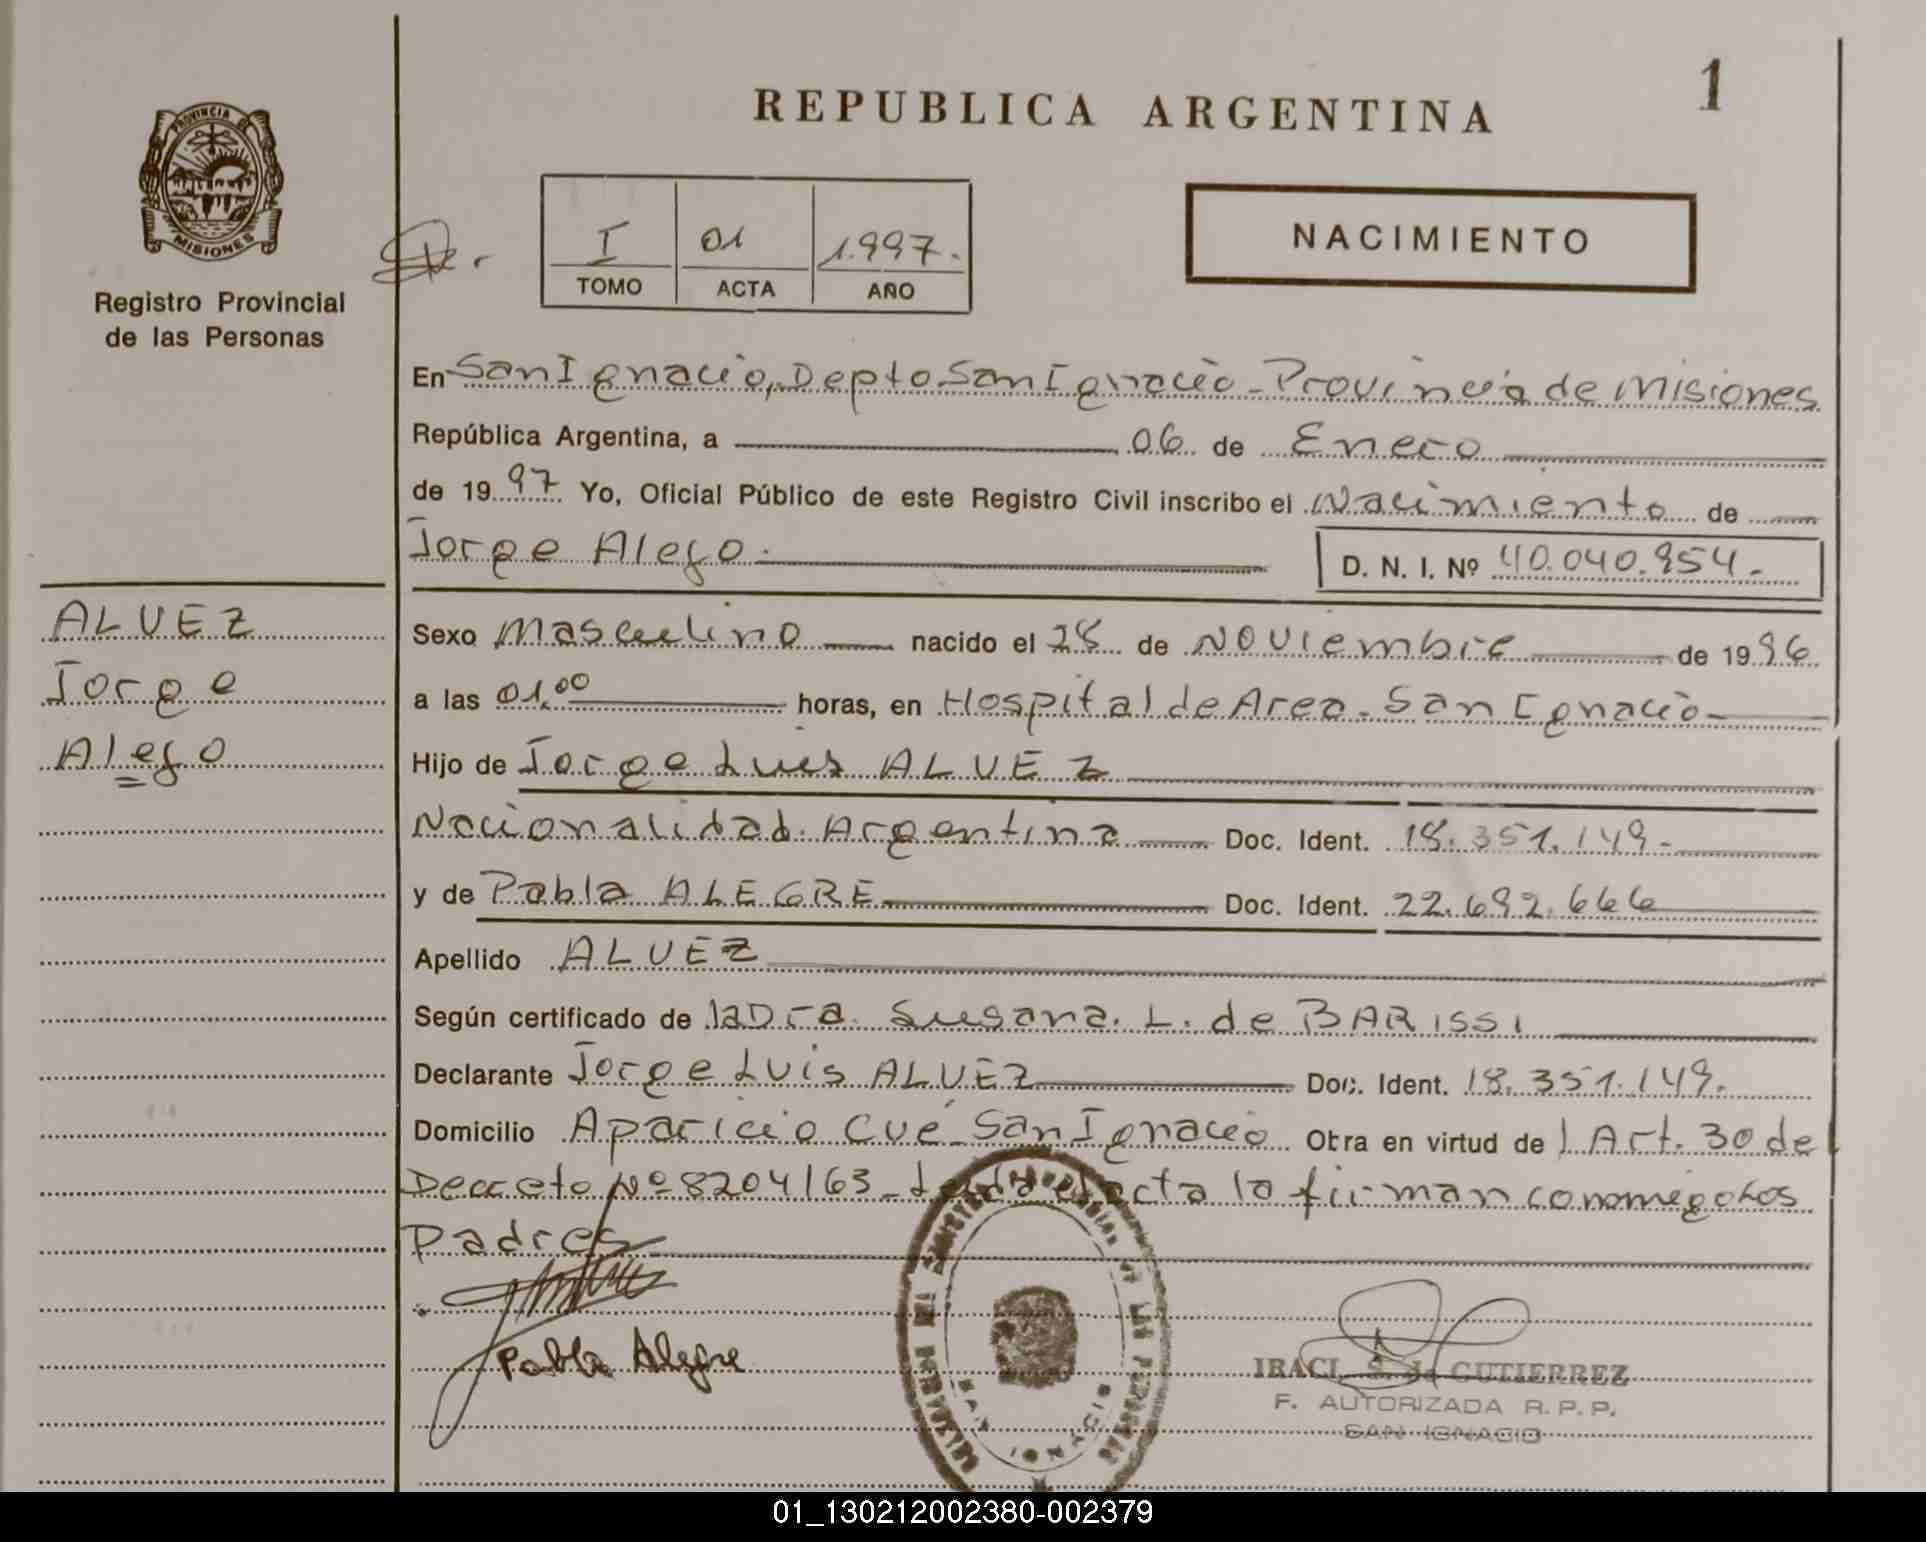 REPUBLICA ARGENTINA
1
PROVINCIA DE
MISIONES
Registro Provincial
de las Personas
I 01 1.997.
TOMO ACTA AÑO
NACIMIENTO
En San Ignacio, Depto San Ignacio - Provincia de Misiones
República Argentina, a 06 de Enero
de 1997 Yo, Oficial Público de este Registro Civil inscribo el Nacimiento de
Jorge Alejo.
D. N. I. Nº 40.040.954.-
ALVEZ
Jorge
Alejo
Sexo Masculino nacido el 28 de Noviembre de 1996
a las 01,00 horas, en Hospital de Area - San Ignacio
Hijo de Jorge Luis ALVEZ
Nacionalidad Argentina Doc. Ident. 18.351.149.-
y de Pabla ALEGRE Doc. Ident. 22.692.666
Apellido ALVEZ
Según certificado de la Dra. Susana L. de BARISSI
Declarante Jorge Luis ALVEZ Doc. Ident. 18.351.149.
Domicilio Aparicio Cué - San Ignacio Obra en virtud de l Art. 30 de
Decreto Nº 8204/63 - Leida el acta la firman conmigo Los
Padres
Pabla Alegre
SAN IGNACIO
IRACI S. de GUTIERREZ
F. AUTORIZADA R.P.P.
SAN IGNACIO
01_130212002380-002379